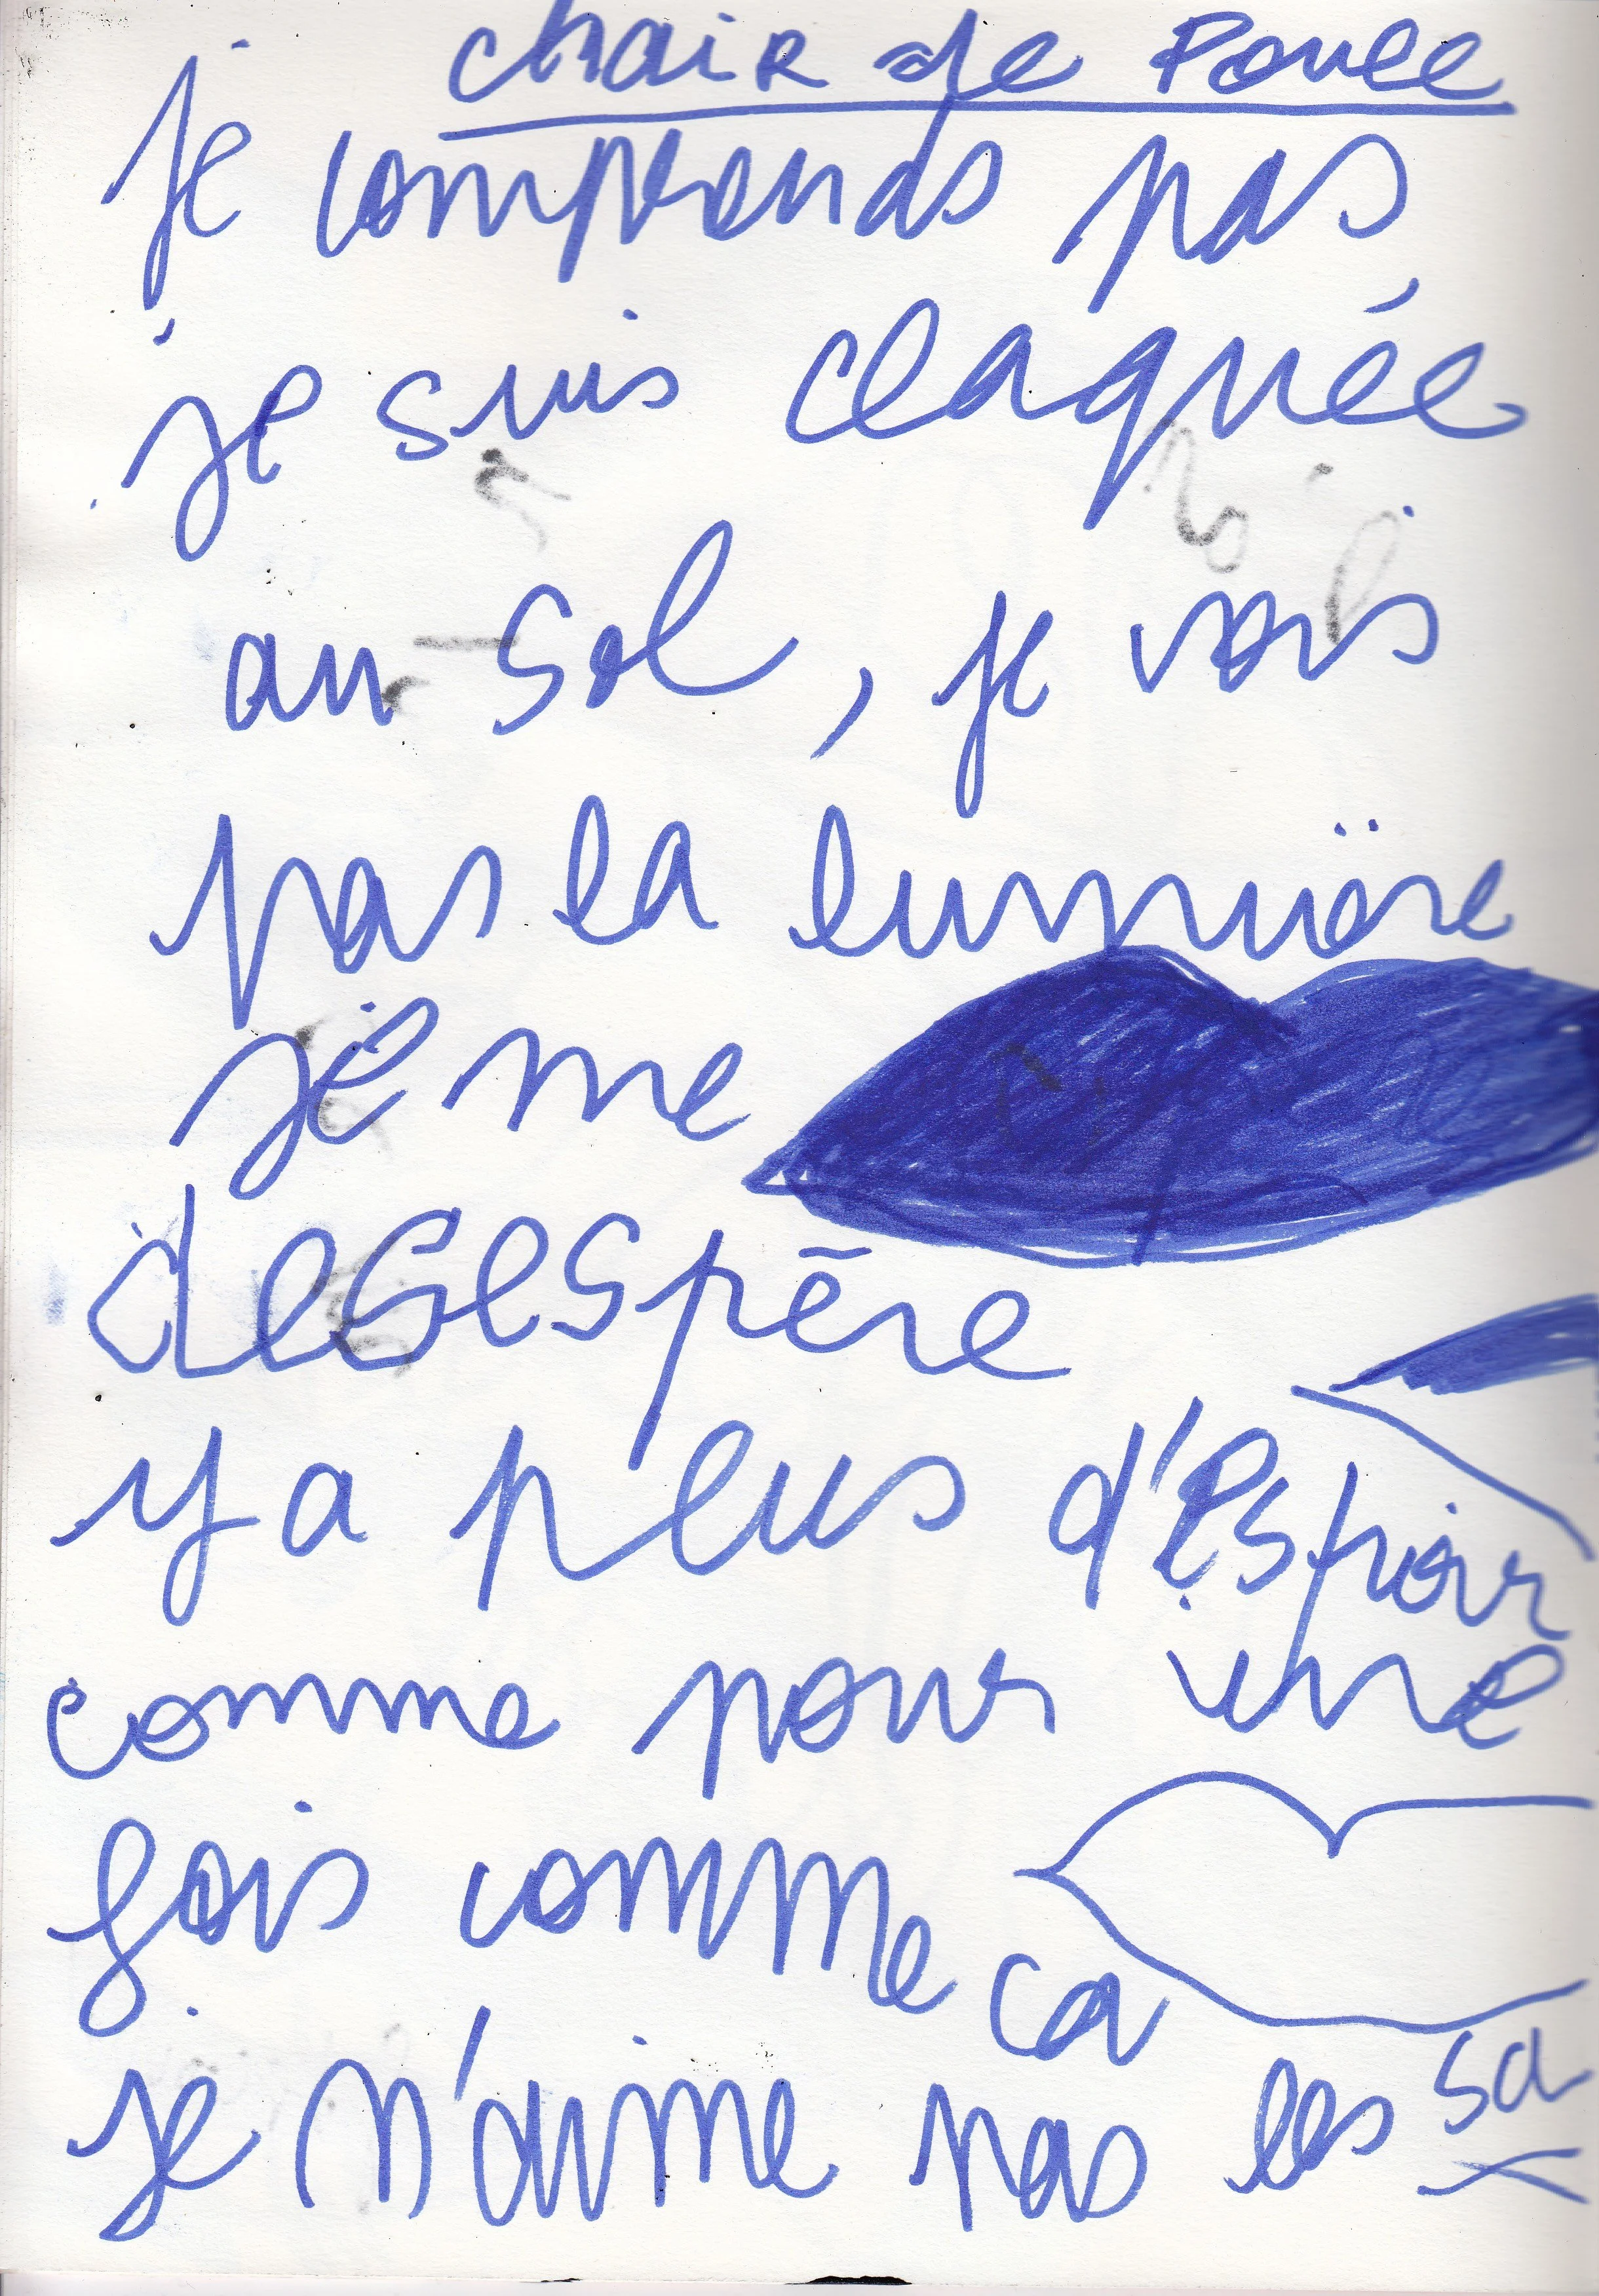 chair de Poule
je comprends pas,
je suis claquée
au sol, je vois
pas la lumière
je me
desespère
y a plus d'espoir
comme pour une
fois comme ca
je n'aime pas les sa